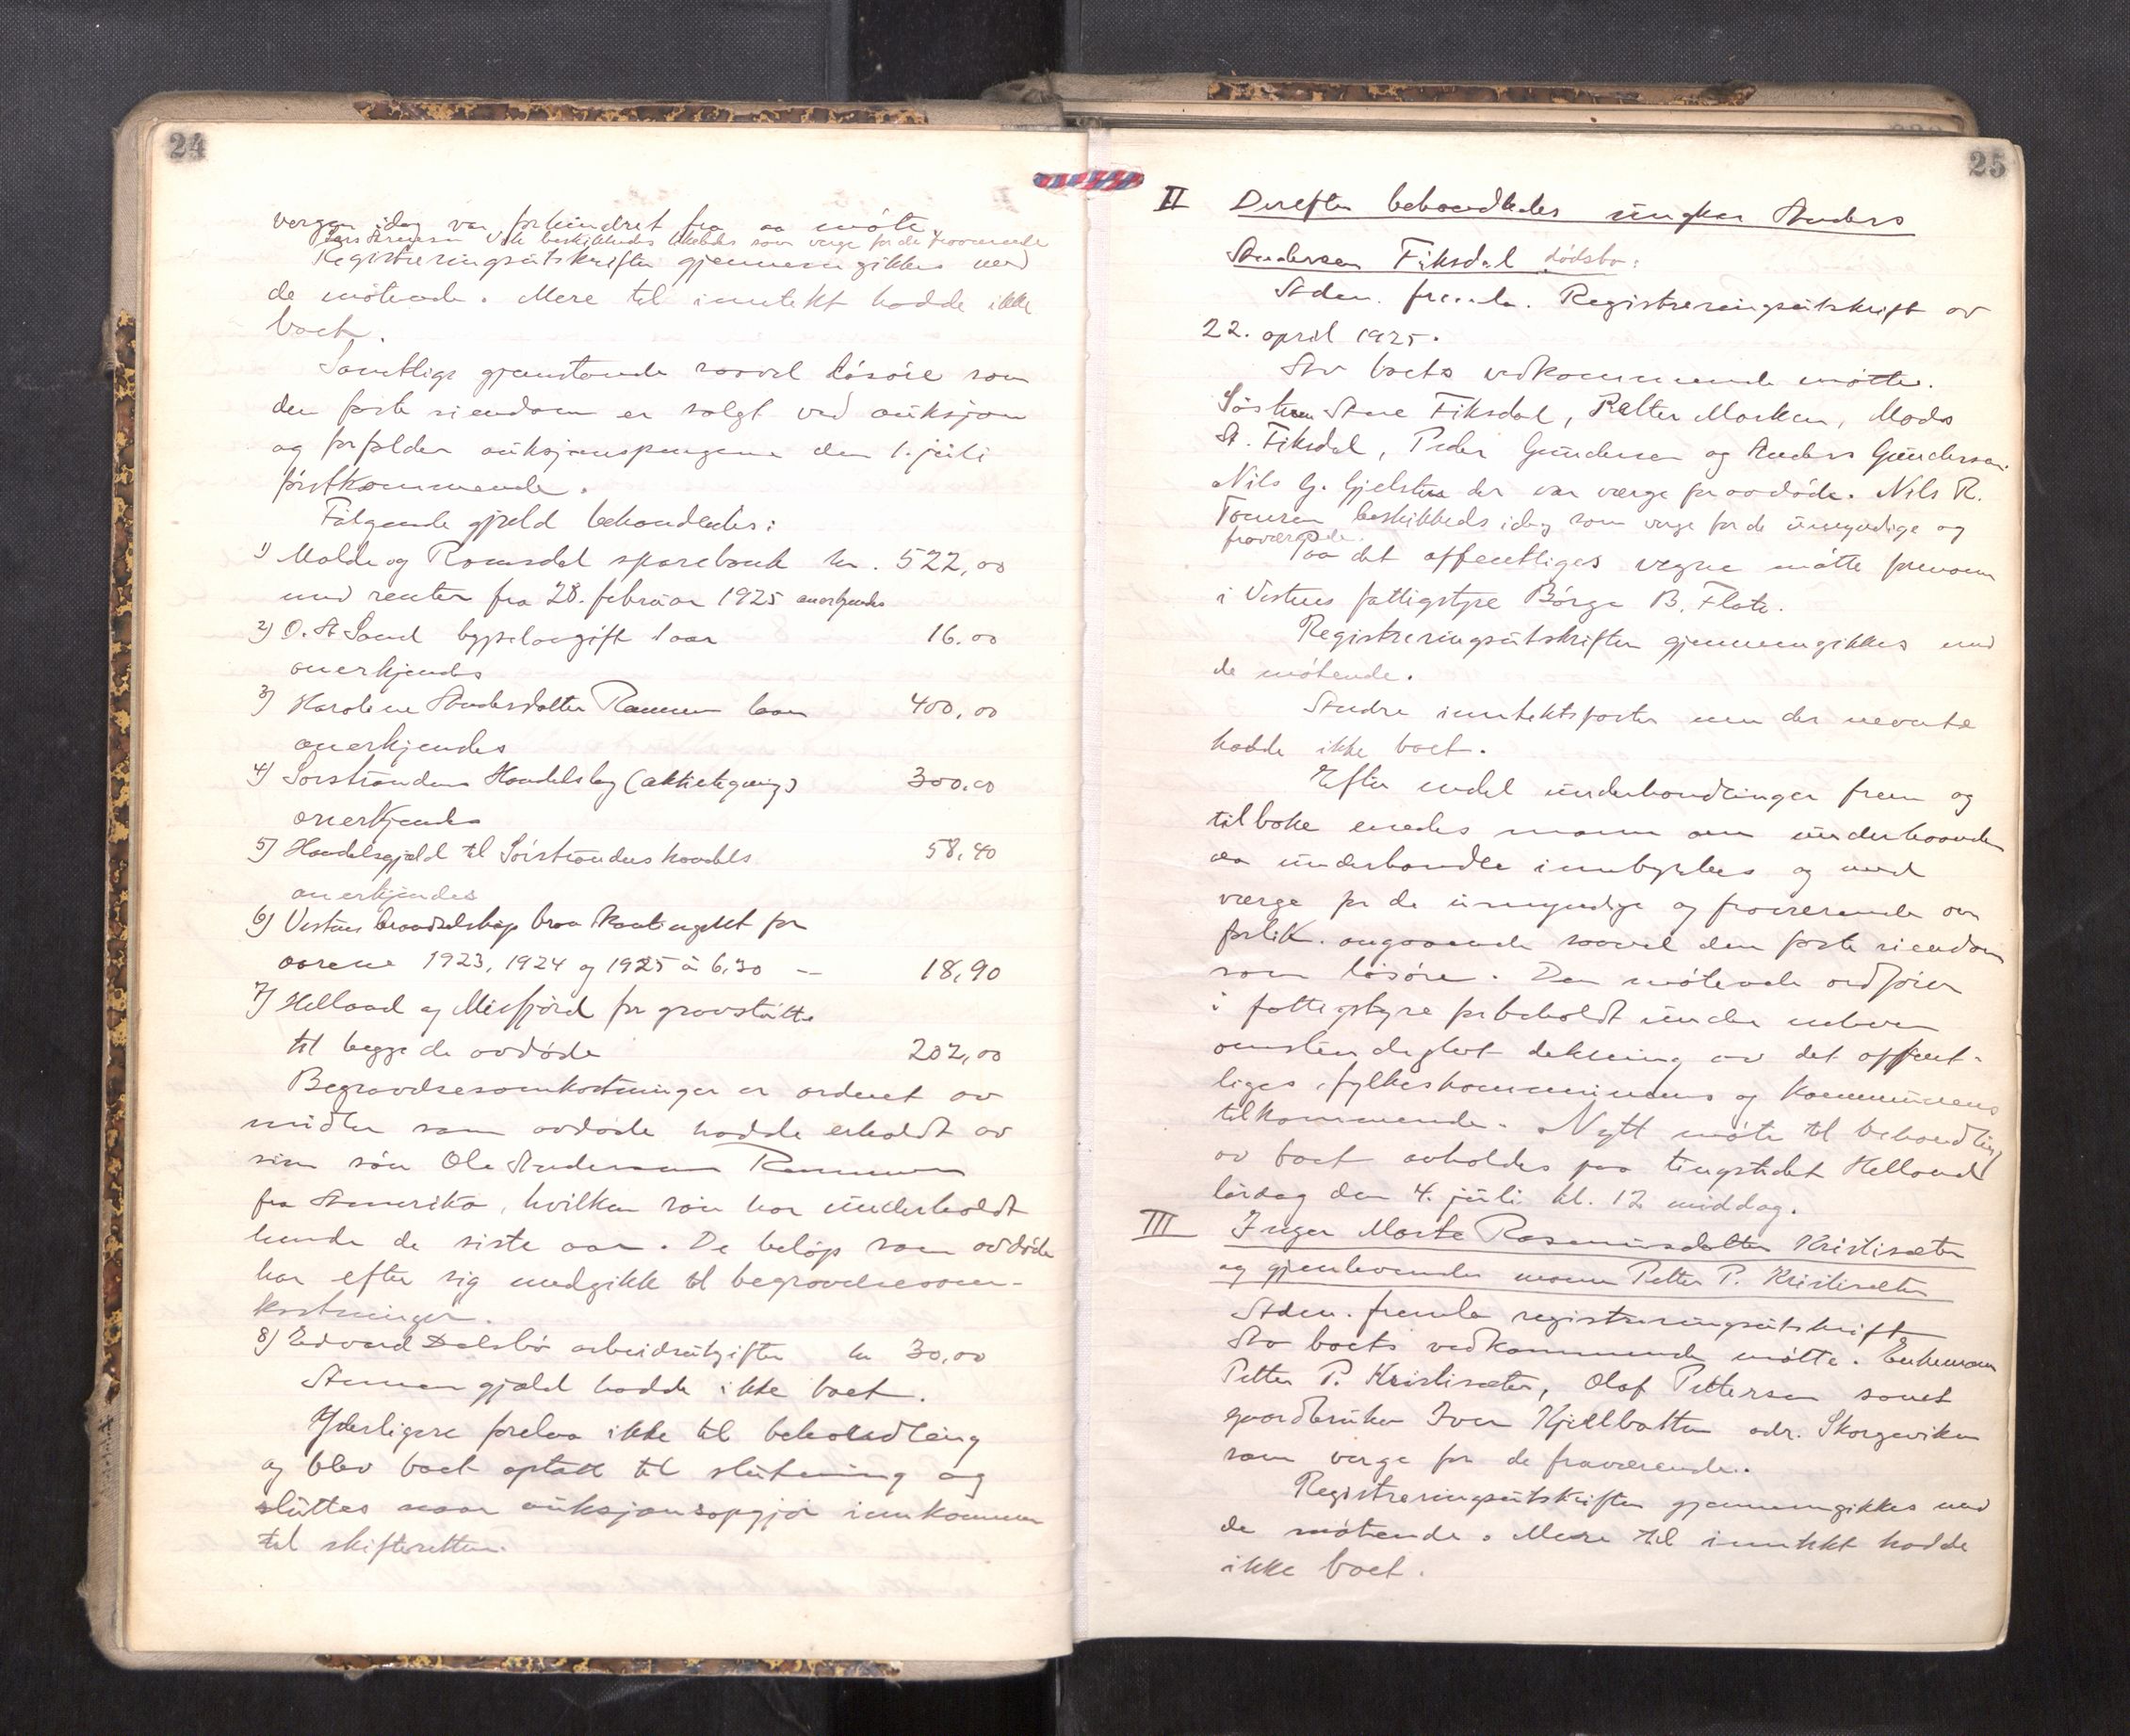 24
vergen idag var forhindret fra aa møte.
beskikkedes likeledes som verge for de fraværende
Registreringsutskriften gjennemgikkes med
de møtende. Mere til inntekt hadde ikke
boet.
Samtlige gjenstande saavel løsøre som
den faste eiendom er solgt ved auksjon
og forfalder auksjonspengene den 1. juli
førstkommende.
Følgende gjæld behandledes:
1) Molde og Romsdal sparebank kr. 522,00
med renter fra 28. februar 1925 anerkjendes
2) O. A. Sand bygselavgift 1 aar 16.00
anerkjendes
3) Karoline Andersdatter laan 400,00
anerkjendes
4) Sørstrandens Handelslag (aktietegning) 300.00
anerkjendes
5) Handelsgjæld til Sørstrandens handels 58,40
anerkjendes
6) Vestnes brandselskap kontingent for
aarene 1923, 1924 og 1925 à 6,30 — 18,90
7) Helland og Misfjord for gravstøtte
til begge de avdøde 202,00
Begravelsesomkostninger er ordnet av
midler som avdøde hadde erholdt av
sin søn Ole Andersen
fra Amerika, hvilken søn har underholdt
hende de siste aar. De beløp som avdøde
har efter sig medgikk til begravelsesom-
kostninger.
8) Edvard Dalsbø arbeidsutgifter kr 30,00
Annen gjæld hadde ikke boet.
Yderligere forelaa ikke til behandling
og blev boet optatt til slutning og
sluttes naar auksjonsopgjør innkommer
til skifteretten.
25
II Derefter behandledes ungkar Anders
Andersen Fiksdal dødsbo:
Adm. freml. Registreringsutskrift av
22. april 1925.
Av boets vedkommende møtte.
Søsteren Ane Fiksdal, Petter Morken, Mads
A. Fiksdal, Peder Gundersen og Anders Gundersen.
Nils G. Gjelsten der var værge for avdøde. Nils R.
beskikkeds idag som verge for de umyndige og
fraværende.
Paa det offentliges vegne møtte formann
i Vestnes fattigstyre Børge B. Flate.
Registreringsutskriften gjennemgikkes med
de møtende.
Andre inntektsposter enn der nevnte
hadde ikke boet.
Efter endel underhandlinger frem og
tilbake enedes mann om underhaanden
aa underhandle innbyrdes og med
værge for de umyndige og fraværende om
forlik. angaaende saavel den faste eiendom
som løsøre. Den møtende ordfører
i fattigstyre forbeholdt under enhver
omstendighet dekning av det offent-
liges, fylkeskommunens og kommunens
tilkommende. Nytt møte til behandling
av boet avholdes paa tingstedet Helland
lørdag den 4. juli kl. 12 middag.
III Inger Marte Rasmusdatter Kristisæter
og gjenlevende mann Petter P. Kristisæter
Adm. fremla registreringsutskrift
Av boets vedkommende møtte. Enkemann
Petter P. Kristisæter, Olaf Pettersen samt
gaardbruker Iver Kjelbotten adr. Skorgeviken
som verge for de fraværende.
Registreringsutskriften gjennemgikkes med
de møtende. Mere til inntekt hadde
ikke boet.